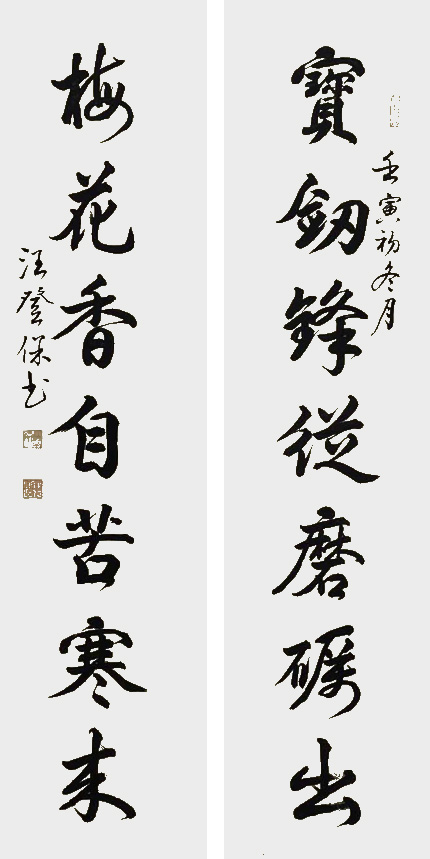 寶劒鋒從磨礪出
壬寅初冬月
梅花香自苦寒来
汪登保书